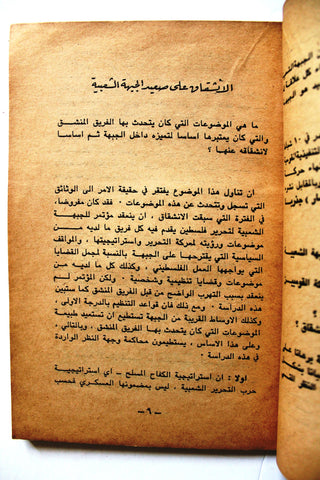 الانشقاق على صعيد الجبهة الشعبية
ما هي الموضوعات التي كان يتحدث بها الفريق المنشق
والتي كان يعتبرها اساسا لتميزه داخل الجبهة ثم اساسا
لانشقاقه عنها ؟
ان تناول هذا الموضوع يفتقر في حقيقة الامر الى الوثائق
التي تسجل وتتحدث عن هذه الموضوعات . فقد كان مفروضا،
في الفترة التي سبقت الانشقاق ، ان ينعقد مؤتمر للجبهة
الشعبية لتحرير فلسطين يقدم فيه كل فريق ما لديه من
موضوعات ورؤيته لحركة التحرير واستراتيجيتها، والمواقف
السياسية التي يقترحها على الجبهة بالنسبة لمجمل القضايا
التي يواجهها العمل الفلسطيني ، وكذلك كل ما لديه من
قضايا وموضوعات تنظيمية وشخصية . ولكن المؤتمر لم
ينعقد بسبب التهرب الواضح من قبل الفريق المنشق كما سنتبين
في هذه الدراسة . ومع ذلك فان قواعد التنظيم بالدرجة الاولى ،
وكذلك الاوساط القريبة من الجبهة تستطيع ان تتبين
الموضوعات التي كان يتحدث بها الفريق المنشق ، وبالتالي ،
وعلى هذا الاساس ، يستطيعون محاكمة وجهة النظر الواردة
في هذه الدراسة .
اولا : ان استراتيجية الكفاح المسلح – أي استراتيجية
حرب التحرير الشعبية ، ليس بمضمونها العسكري فحسب
– ٦ –